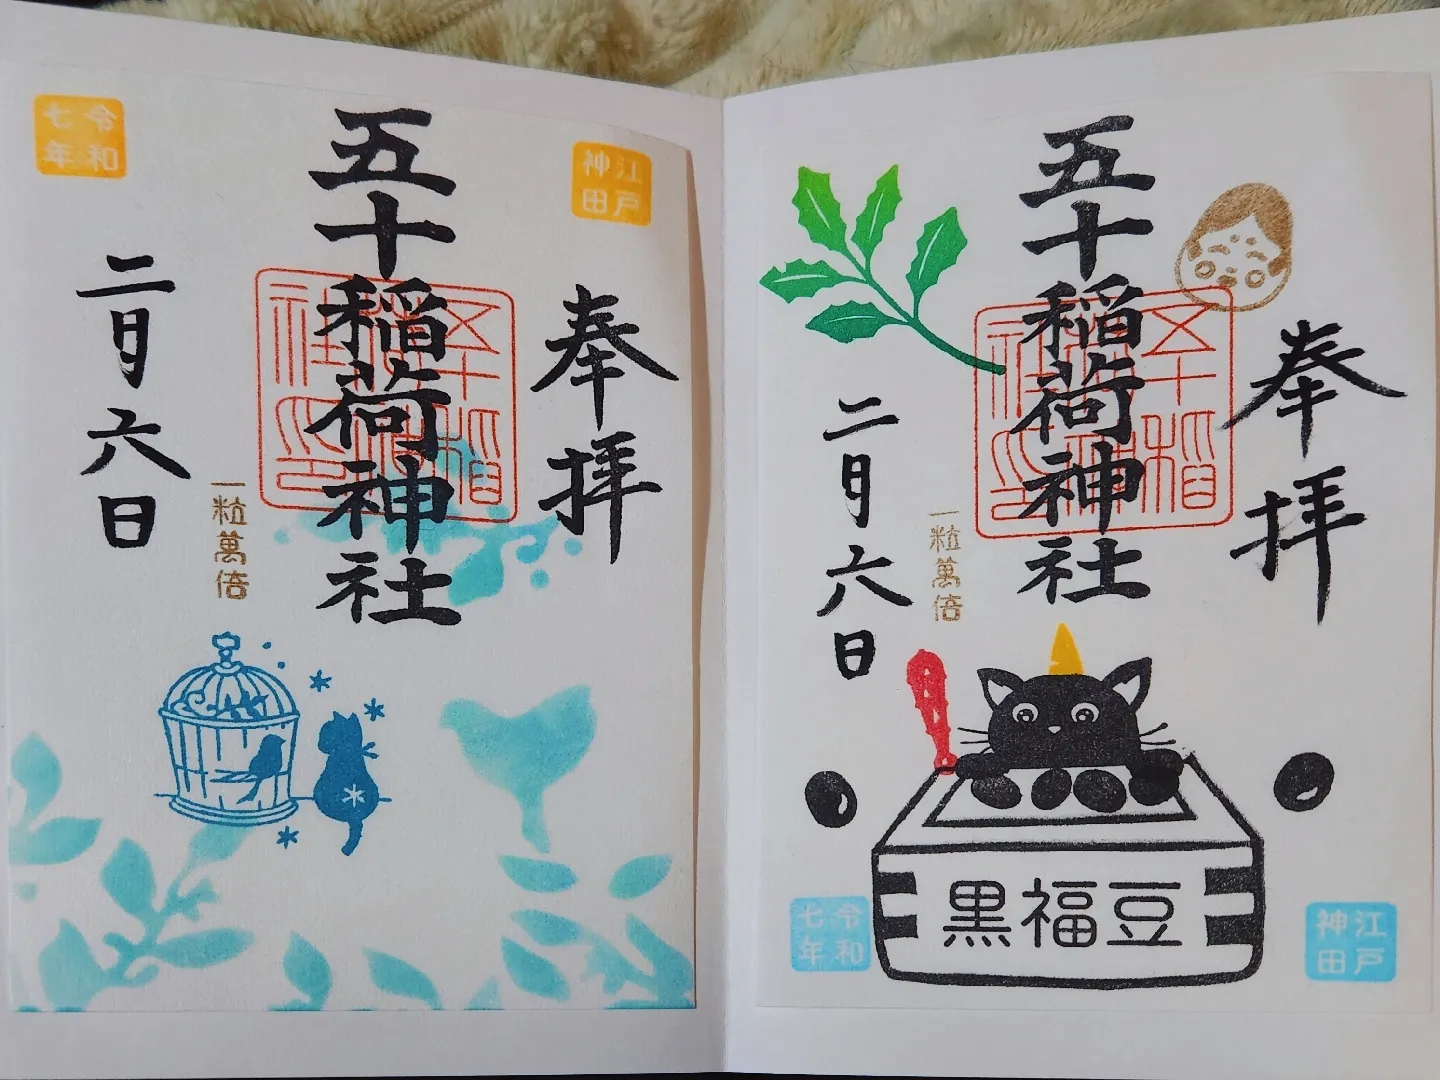 江戸
神田
奉拝
五十稲荷神社
一粒萬倍
二月六日
令和
七年
奉拝
五十稲荷神社
一粒萬倍
二月六日
黒福豆
江戸
神田
令和
七年